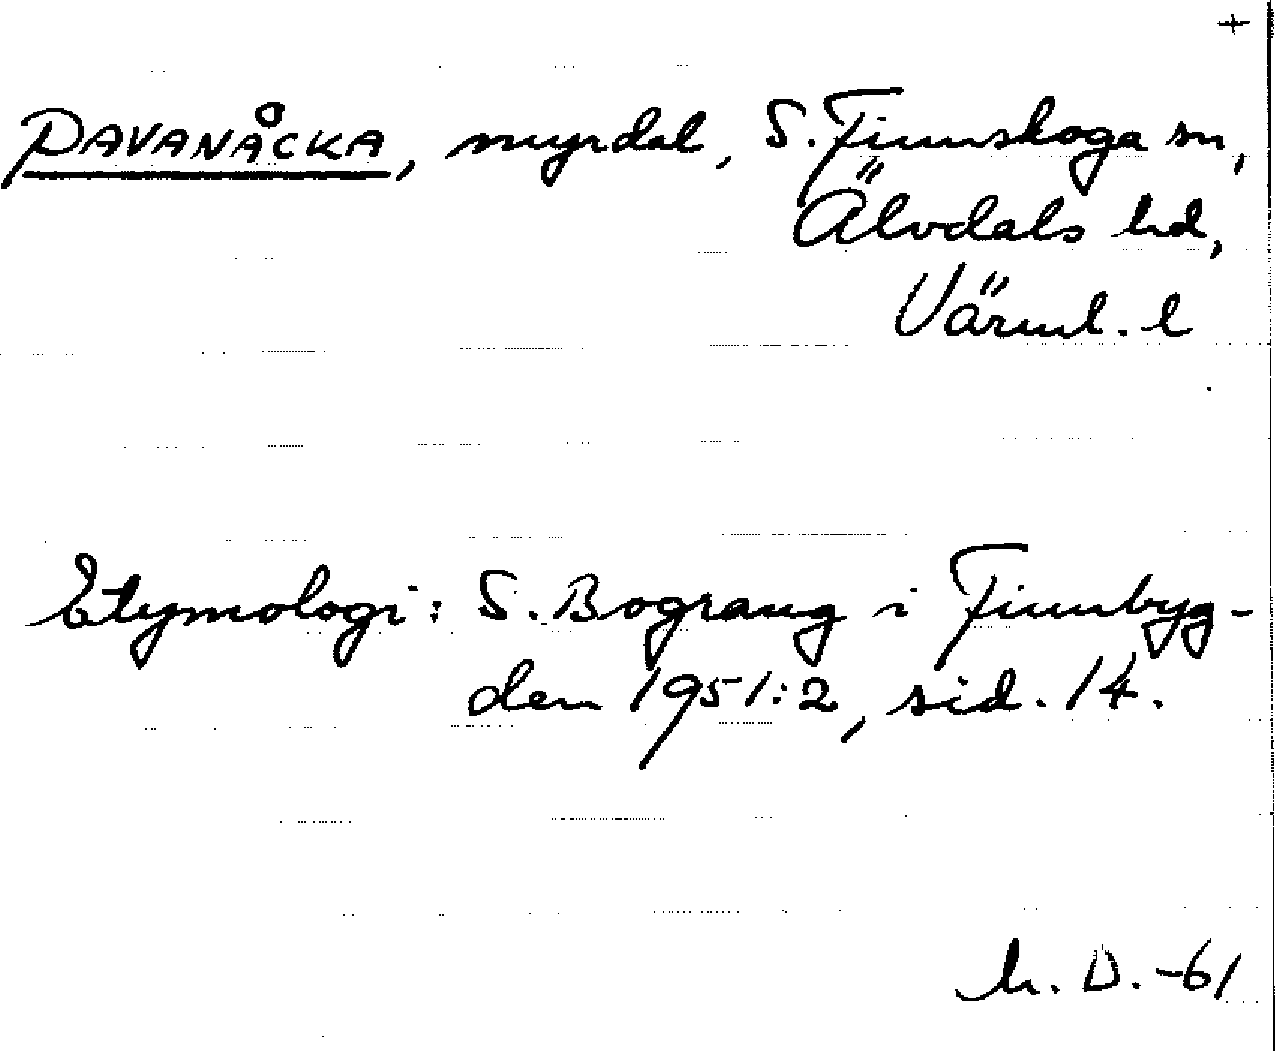 +
PAVANÅCKA, myrdal, S. Finnskoga sn,
Älvdals hd,
Värml. l
Etymologi: S. Bograng i Finnbyg-
den 1951:2, sid. 14.
h. D. -61